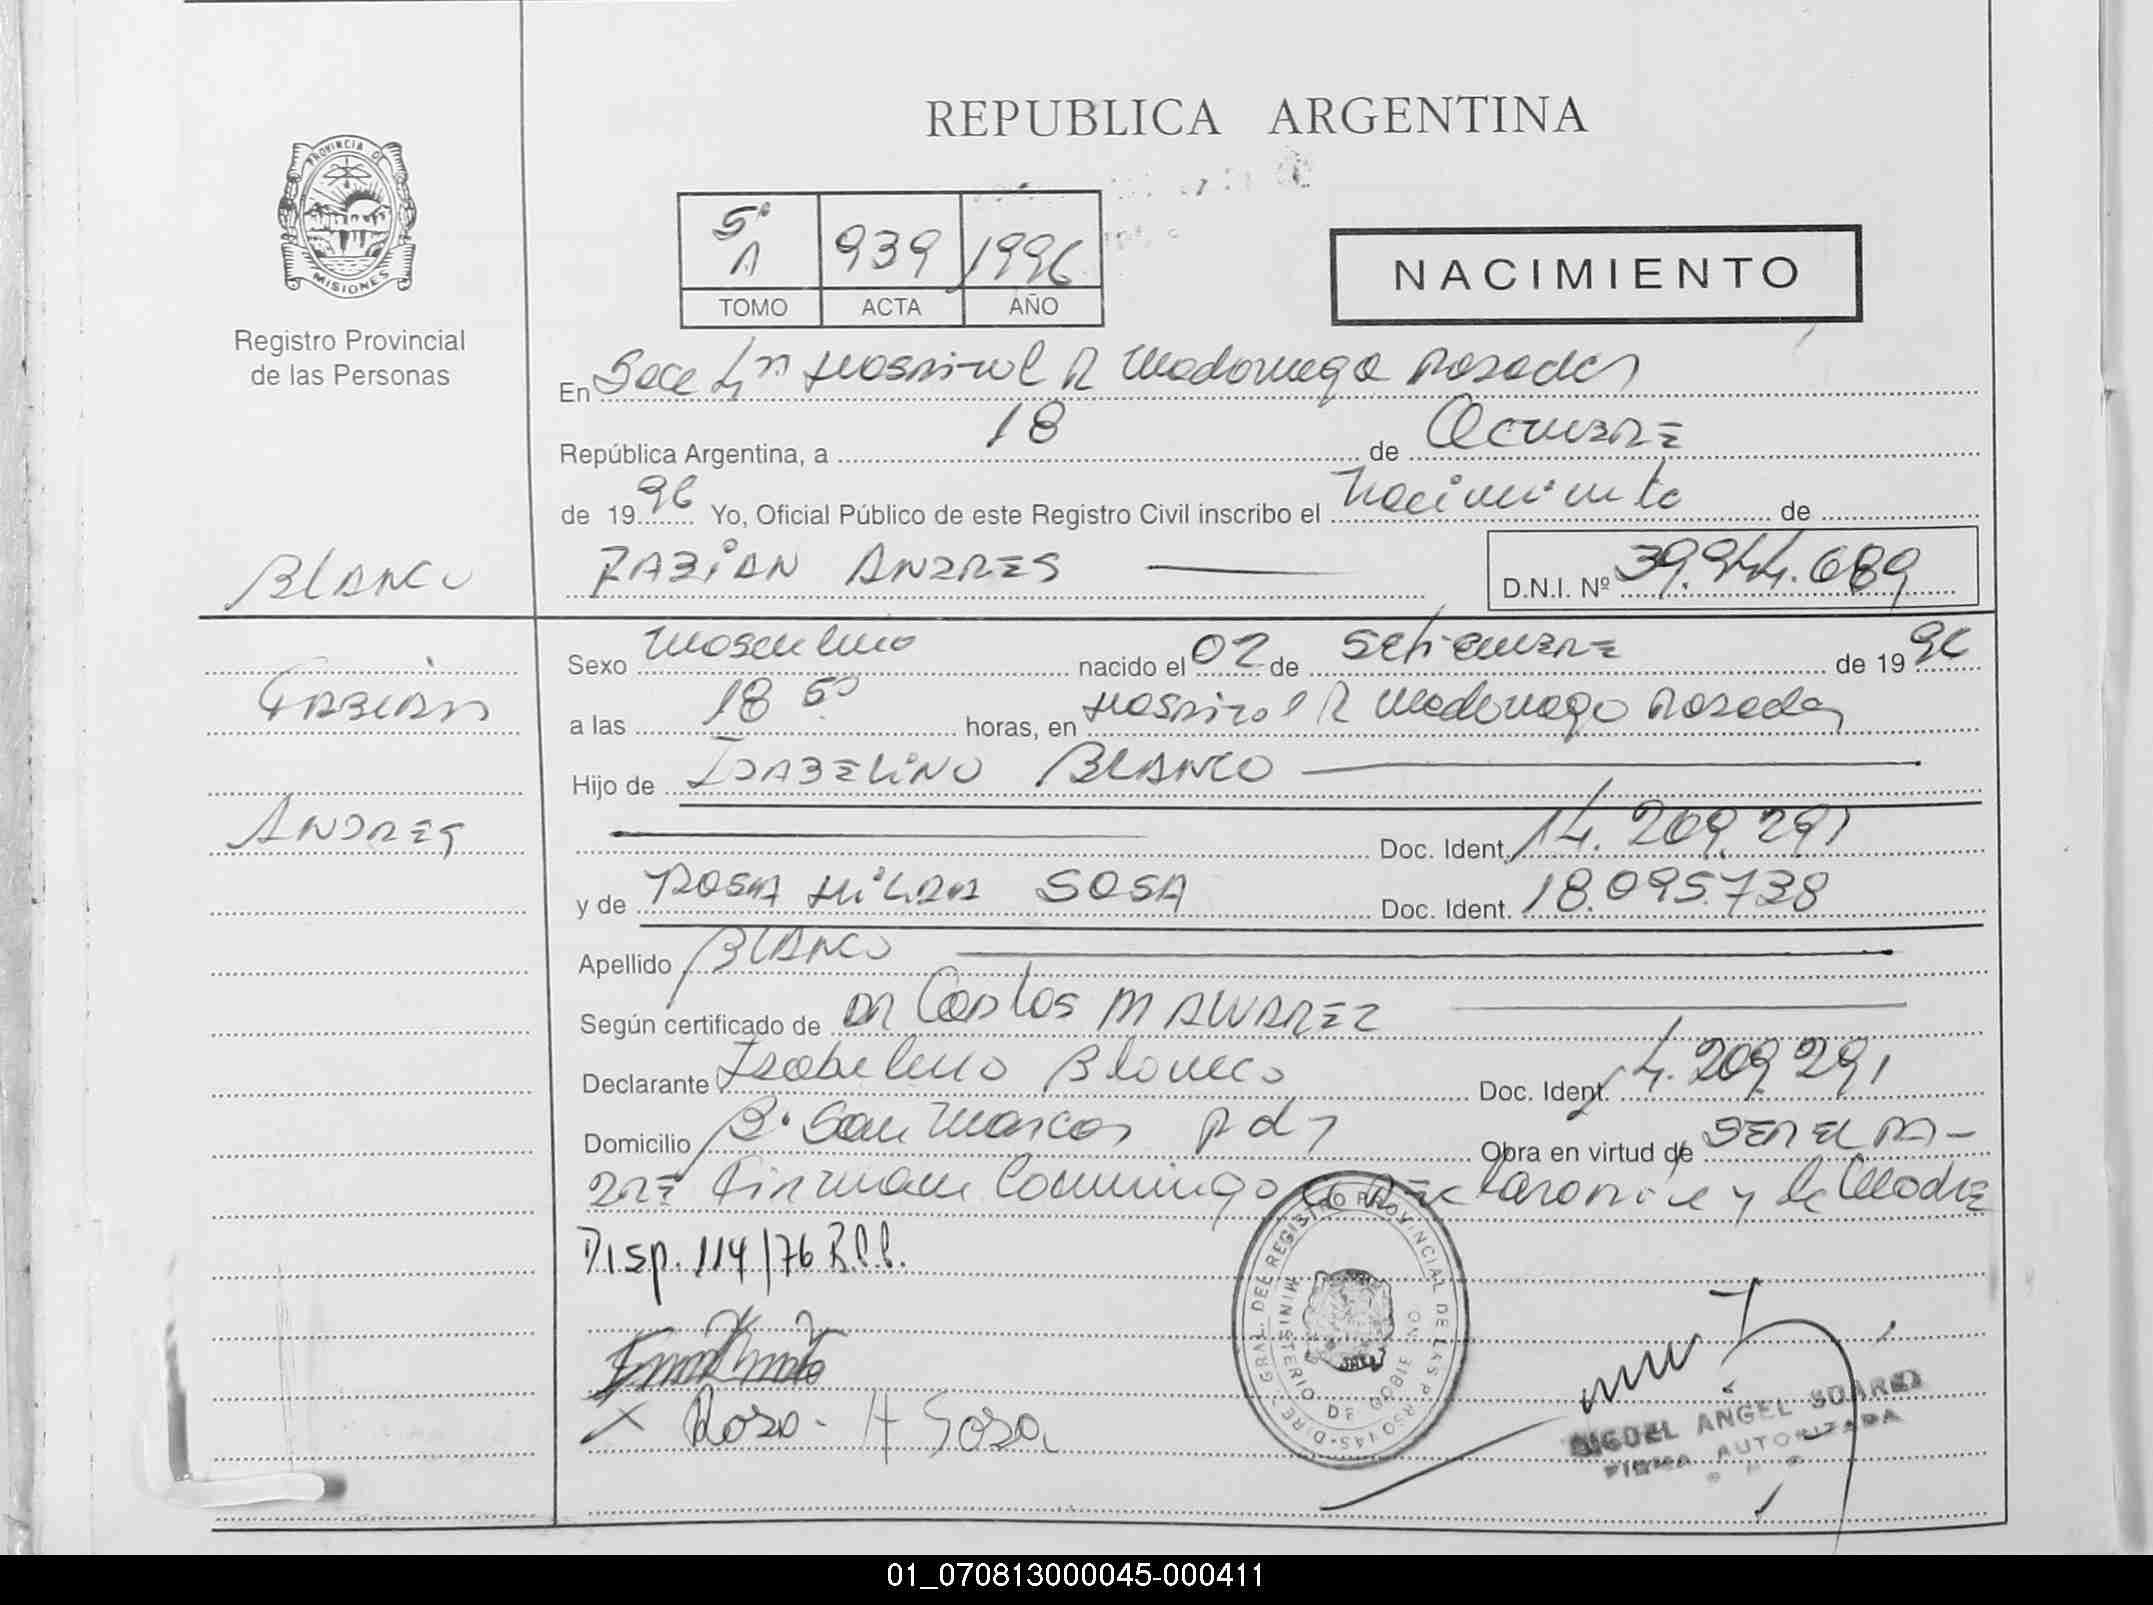 REPUBLICA ARGENTINA
PROVINCIA DE
MISIONES
Registro Provincial
de las Personas
5º A 939 1996
TOMO ACTA AÑO
NACIMIENTO
En Secc Hospital R Madariaga Posadas
República Argentina, a 18 de Octubre
de 1996 Yo, Oficial Público de este Registro Civil inscribo el Nacimiento de
BLANCO
FABIAN ANDRES
D.N.I. Nº 39.944.689
FABIAN
ANDRES
Sexo Masculino nacido el 02 de Setiembre de 1996
a las 18 50 horas, en Hospital R Madariaga Posadas
Hijo de ISABELINO BLANCO
Doc. Ident. 14.209.291
y de ROSA HILDA SOSA Doc. Ident. 18.095.738
Apellido BLANCO
Según certificado de DR Carlos M ALVAREZ
Declarante Isabelino Blanco Doc. Ident. 14.209.291
Domicilio Bº San Marcos Pdas Obra en virtud de SER EL PA-
DRE Firman Conmigo el Declarante y la Madre
Disp. 114/76 R.P.P.
X Rosa H Sosa
DIRE. GRAL. DEL REGISTRO PROVINCIAL DE LAS PERSONAS
MINISTERIO DE GOBIERNO
MIGUEL ANGEL SUAREZ
FIRMA AUTORIZADA
01_070813000045-000411